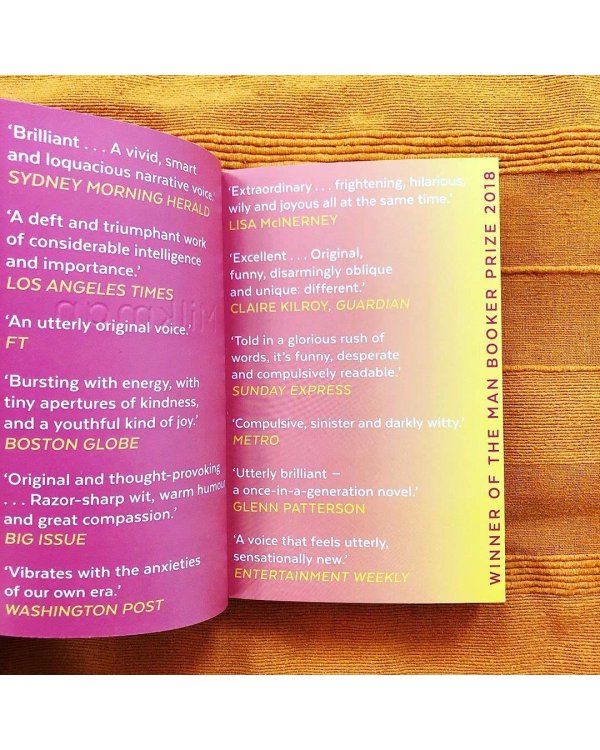 ‘Brilliant . . . A vivid, smart
and loquacious narrative voice.’
SYDNEY MORNING HERALD
‘A deft and triumphant work
of considerable intelligence
and importance.’
LOS ANGELES TIMES
Milkman
‘An utterly original voice.’
FT
‘Bursting with energy, with
tiny apertures of kindness,
and a youthful kind of joy.’
BOSTON GLOBE
‘Original and thought-provoking
. . . Razor-sharp wit, warm humour
and great compassion.’
BIG ISSUE
‘Vibrates with the anxieties
of our own era.’
WASHINGTON POST
‘Extraordinary . . . frightening, hilarious,
wily and joyous all at the same time.’
LISA McINERNEY
‘Excellent . . . Original,
funny, disarmingly oblique
and unique: different.’
CLAIRE KILROY, GUARDIAN
‘Told in a glorious rush of
words, it’s funny, desperate
and compulsively readable.’
SUNDAY EXPRESS
‘Compulsive, sinister and darkly witty.’
METRO
‘Utterly brilliant –
a once-in-a-generation novel.’
GLENN PATTERSON
‘A voice that feels utterly,
sensationally new.’
ENTERTAINMENT WEEKLY
WINNER OF THE MAN BOOKER PRIZE 2018